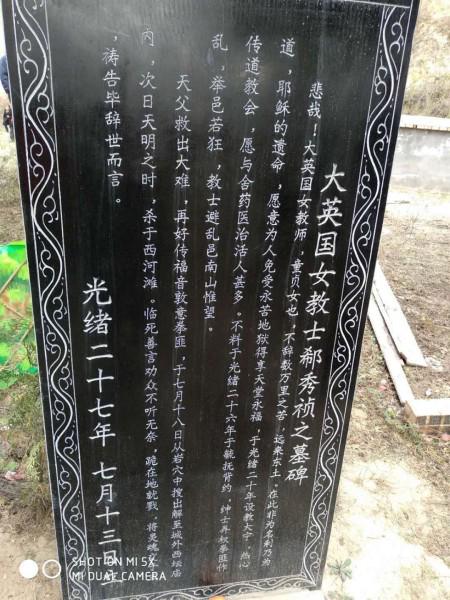 大英国女教士郗秀祯之墓碑
悲哉！大英国女教师，童贞女也，不辞数万里之苦，远来东土。在此非为名利乃为
道，耶稣的遗命，愿意为人免受永苦地狱得享天堂永福，于光绪二十年设教大宁，热心
传道教会，愿与舍药医治活人甚多。不料于光绪二十六年于毓抚背约，绅士弄权拳匪作
乱，举邑若狂，教士避乱邑南山惟望。
天父救出大难，再好传福音敦意拳匪，于七月十八日从岩穴中搜出解至城外西坛庙
内，次日天明之时，杀于西河滩。临死善言劝众不听无奈，跪在地就戮，将灵魂
，祷告毕辞世而言。
光绪二十七年 七月十三日
SHOT ON MI 5X
MI DUAL CAMERA